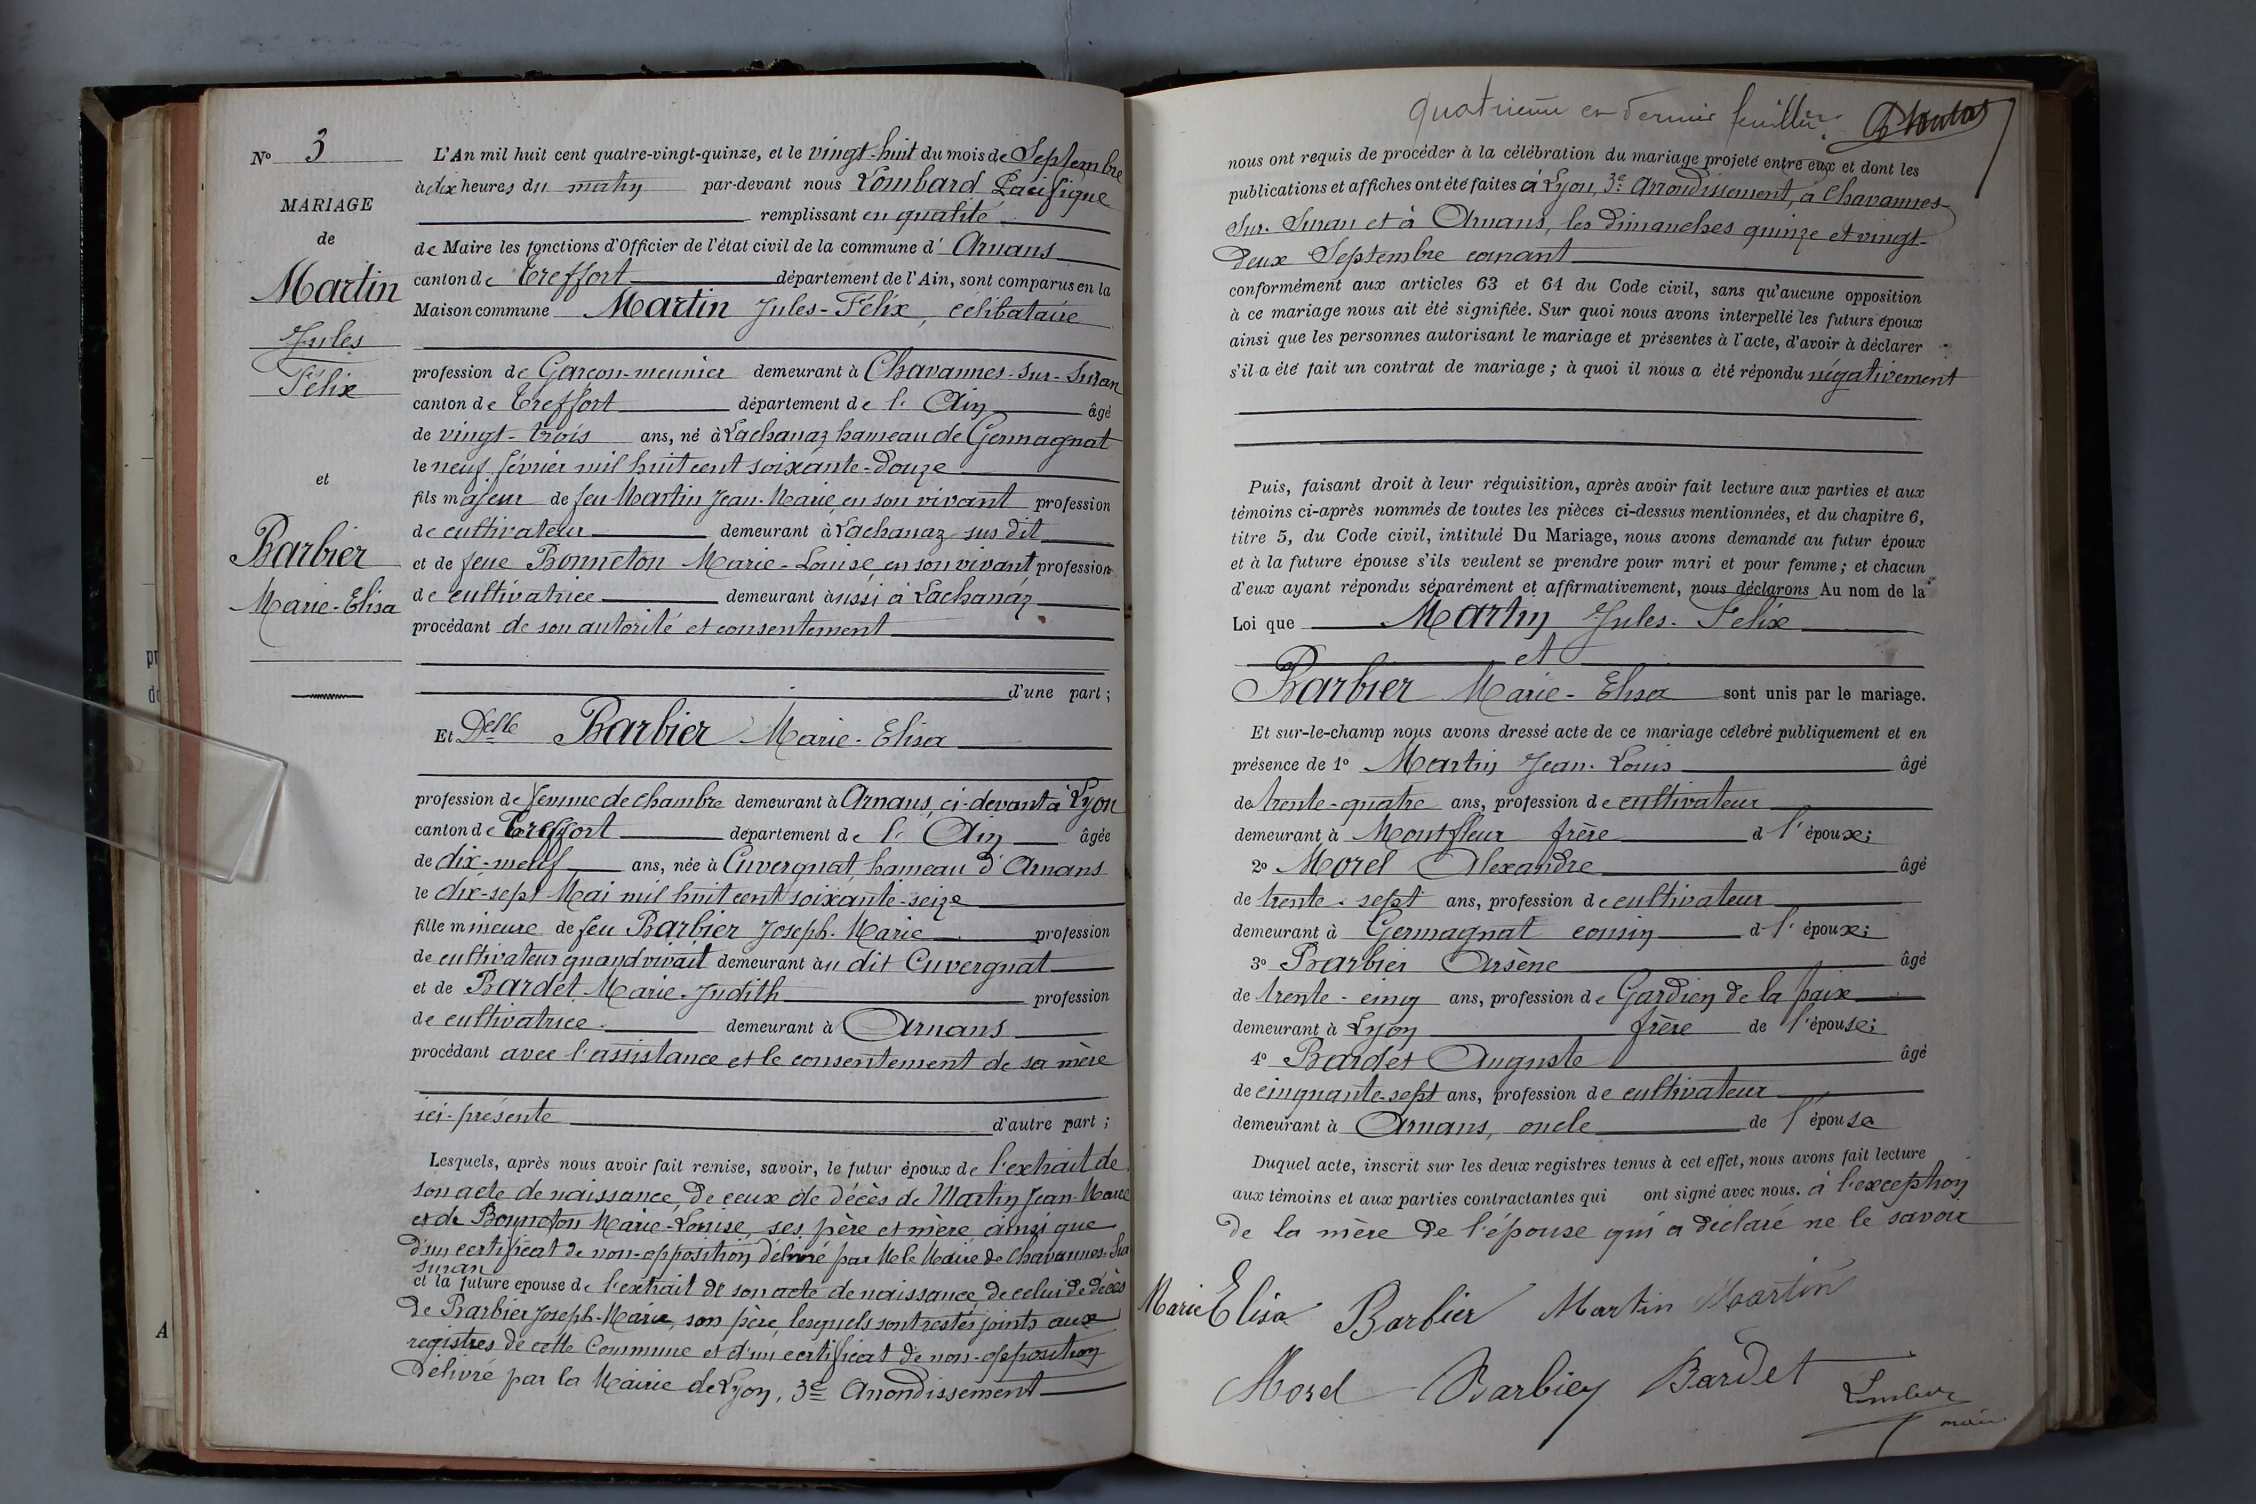 N° 3
MARIAGE
de
Martin
Jules
Félix
et
Barbier
Marie-Elisa
L'An mil huit cent quatre-vingt-quinze, et le vingt-huit du mois de Septembre
à dix heures du matin par-devant nous Lombard Pacifique
remplissant en qualité
de Maire les fonctions d'Officier de l'état civil de la commune d' Arnans
canton de Treffort département de l'Ain, sont comparus en la
Maison commune Martin Jules-Félix, célibataire
profession de Garçon-meunier demeurant à Chavannes-sur-Suran
canton de Treffort département de l'Ain âgé
de vingt-trois ans, né à Lachanaz hameau de Germagnat
le neuf février mil huit cent soixante-douze
fils majeur de feu Martin Jean-Marie, en son vivant profession
de cultivateur demeurant à Lachanaz sus dit
et de feue Bonneton Marie-Louise, en son vivant profession
de cultivatrice demeurant aussi à Lachanaz
procédant de son autorité et consentement
d'une part ;
Et Delle Barbier Marie-Elisa
profession de femme de chambre demeurant à Arnans, ci-devant à Lyon
canton de Treffort département de l'Ain âgée
de dix-neuf ans, née à Cuvergnat, hameau d'Arnans
le dix-sept Mai mil huit cent soixante-seize
fille mineure de feu Barbier Joseph-Marie profession
de cultivateur quand vivait demeurant au dit Cuvergnat
et de Bardet Marie-Judith profession
de cultivatrice demeurant à Arnans
procédant avec l'assistance et le consentement de sa mère
ici-présente d'autre part ;
Lesquels, après nous avoir fait remise, savoir, le futur époux de l'extrait de
son acte de naissance, de ceux de décès de Martin Jean-Marie
et de Bonneton Marie-Louise, ses père et mère ainsi que
d'un certificat de non-opposition délivré par M le Maire de Chavannes-Sur
Suran
et la future epouse de l'extrait de son acte de naissance, de celui de décès
de Barbier Joseph-Marie, son père, lesquels sont restés joints aux
registres de cette Commune et d'un certificat de non-opposition
délivré par la Mairie de Lyon, 3e Arrondissement
quatrième et dernier feuillet.
nous ont requis de procéder à la célébration du mariage projeté entre eux et dont les
publications et affiches ont été faites à Lyon, 3e Arrondissement, à Chavannes-
Sur-Suran et à Arnans, les dimanches quinze et vingt-
deux Septembre courant
conformément aux articles 63 et 64 du Code civil, sans qu'aucune opposition
à ce mariage nous ait été signifiée. Sur quoi nous avons interpellé les futurs époux
ainsi que les personnes autorisant le mariage et présentes à l'acte, d'avoir à déclarer
s'il a été fait un contrat de mariage ; à quoi il nous a été répondu négativement
Puis, faisant droit à leur réquisition, après avoir fait lecture aux parties et aux
témoins ci-après nommés de toutes les pièces ci-dessus mentionnées, et du chapitre 6,
titre 5, du Code civil, intitulé Du Mariage, nous avons demandé au futur époux
et à la future épouse s'ils veulent se prendre pour mari et pour femme ; et chacun
d'eux ayant répondu séparément et affirmativement, nous déclarons Au nom de la
Loi que Martin Jules-Félix
et
Barbier Marie-Elisa sont unis par le mariage.
Et sur-le-champ nous avons dressé acte de ce mariage célébré publiquement et en
présence de 1° Martin Jean-Louis âgé
de trente-quatre ans, profession de cultivateur
demeurant à Montfleur frère d l'époux ;
2° Morel Alexandre âgé
de trente-sept ans, profession de cultivateur
demeurant à Germagnat cousin d l'époux ;
3° Barbier Arsène âgé
de trente-cinq ans, profession de Gardien de la paix
demeurant à Lyon frère de l'épouse ;
4° Bardet Auguste âgé
de cinquante-sept ans, profession de cultivateur
demeurant à Arnans, oncle de l'épouse
Duquel acte, inscrit sur les deux registres tenus à cet effet, nous avons fait lecture
aux témoins et aux parties contractantes qui ont signé avec nous. à l'exception
de la mère de l'épouse qui a déclaré ne le savoir
Marie Elisa Barbier Martin Martin
Morel Barbier Bardet
maire
A